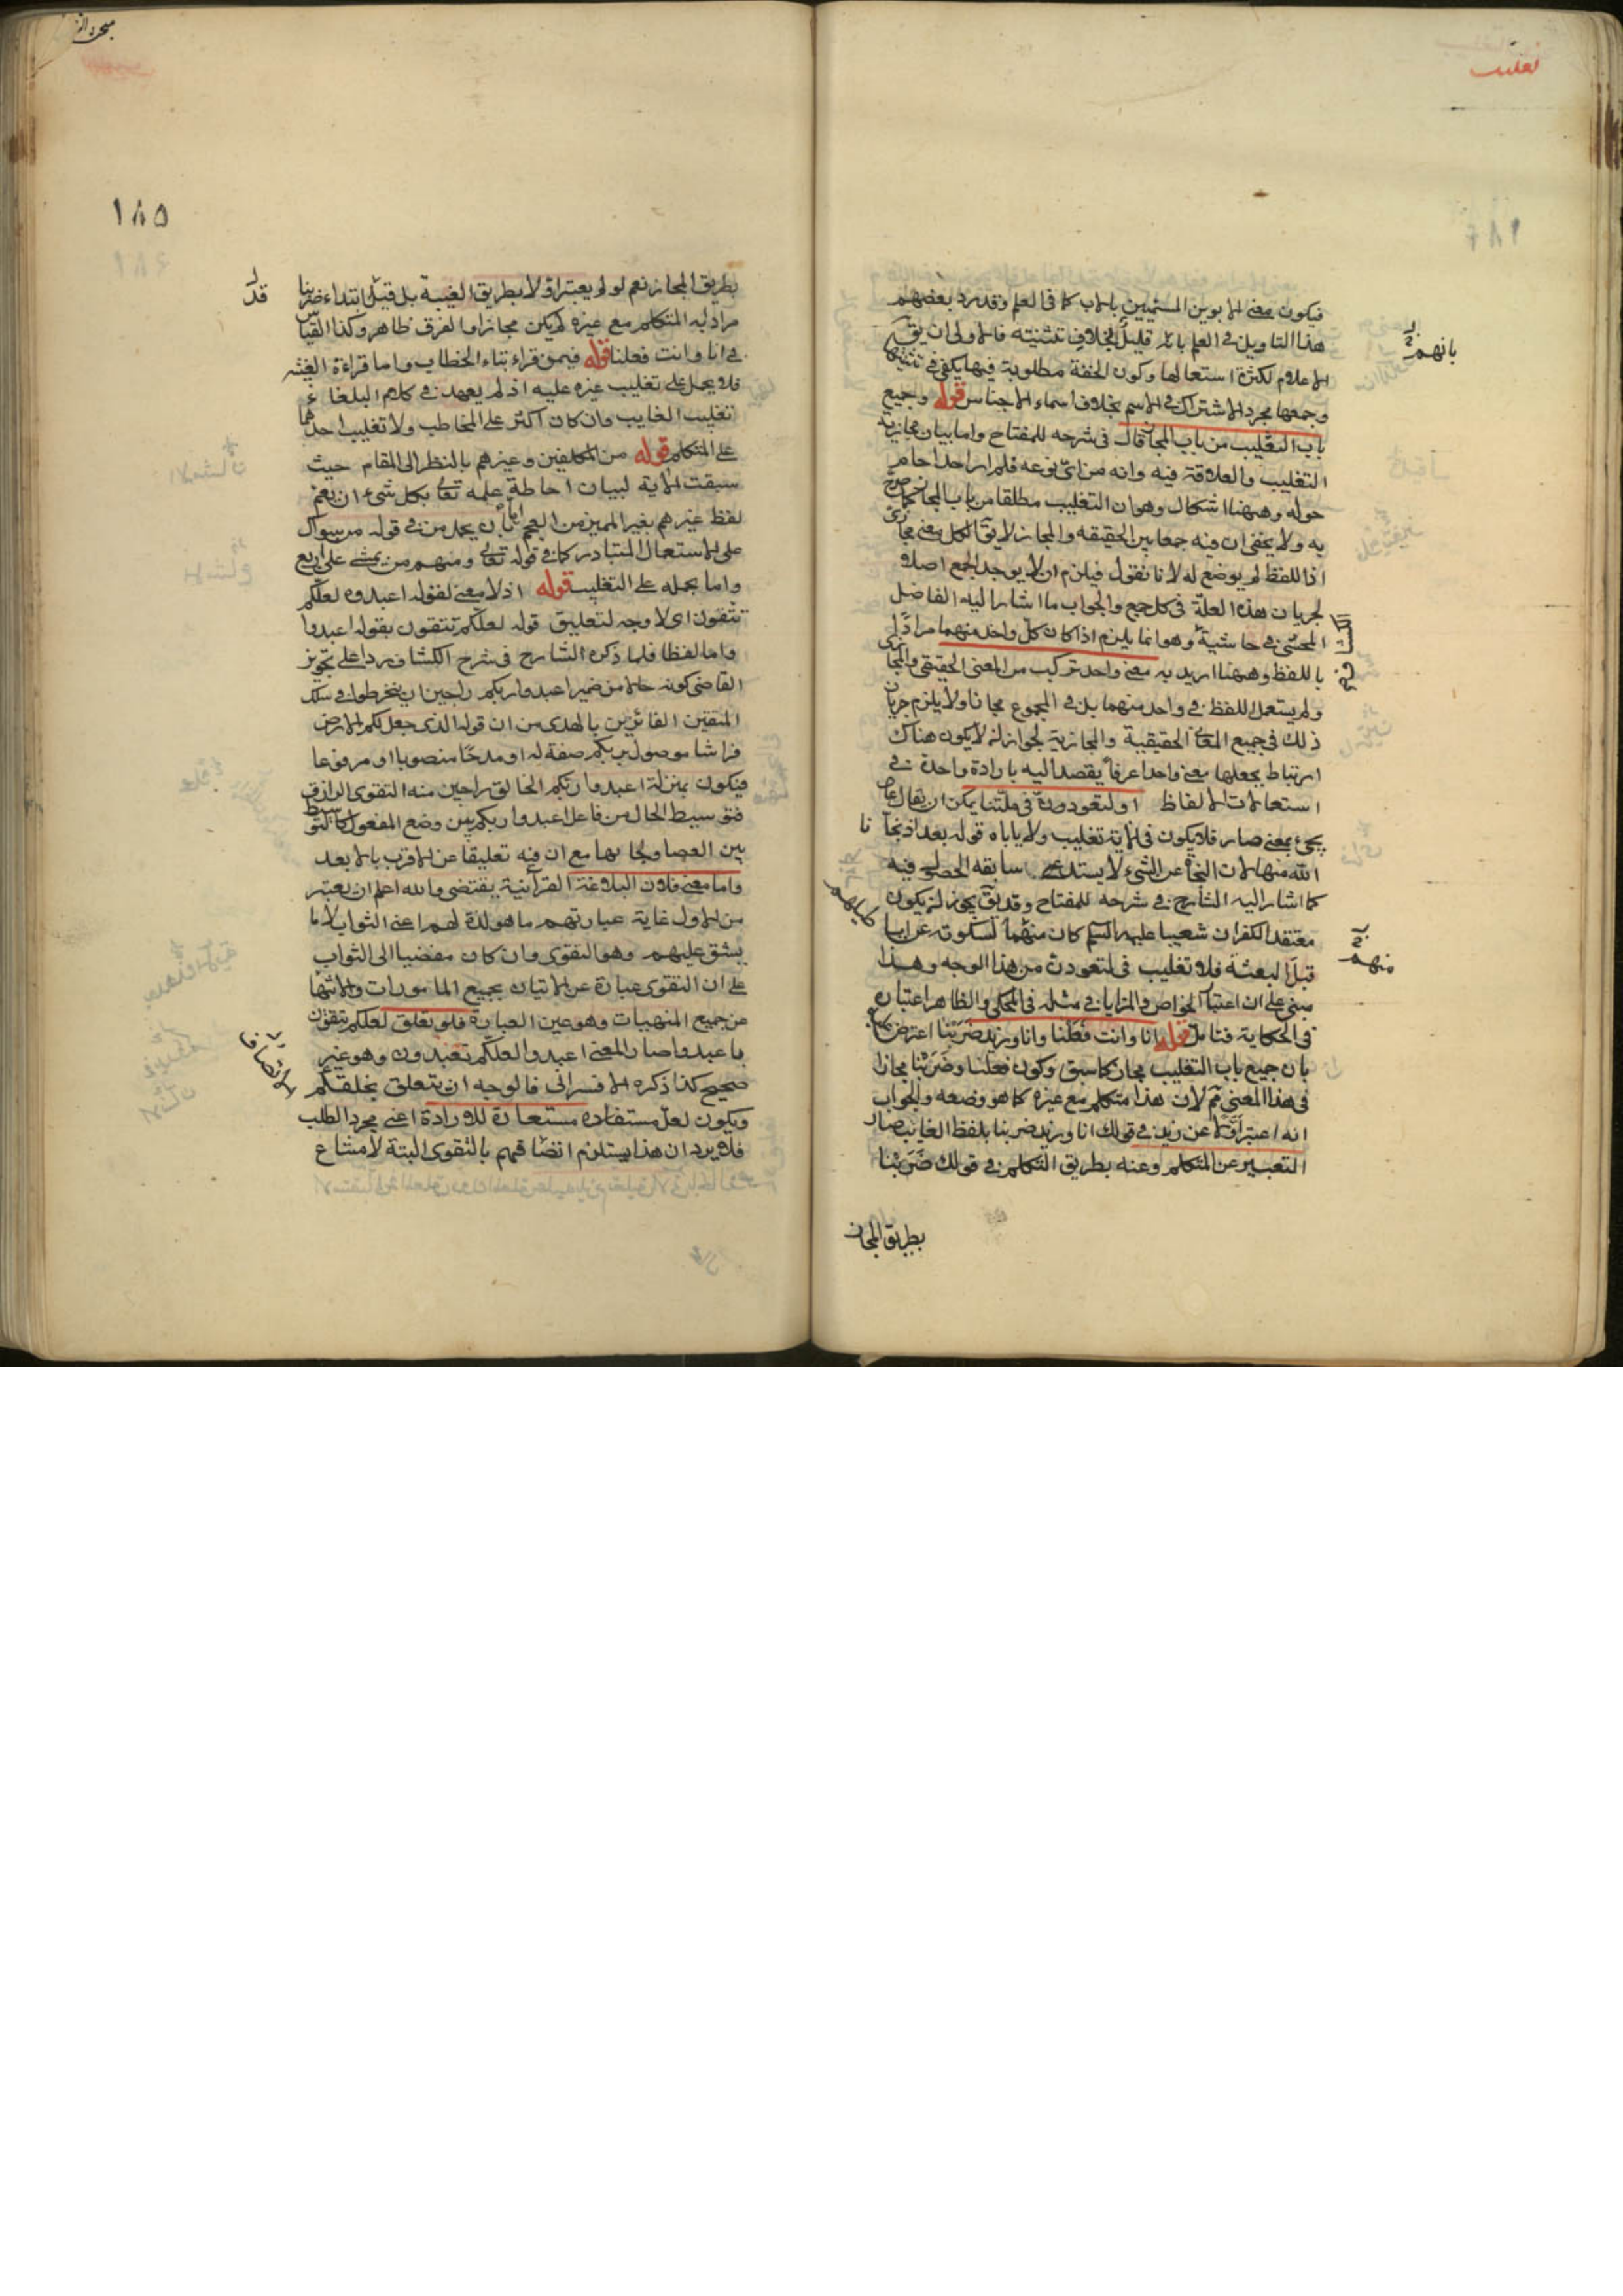 تغليب
فيكون معنى الابوين المسميين بالاب كما في العلم وقد رد بعضهم
هذا التاويل في العلم بانه قليل بخلاف تثنيته فالاولى ان يق
الاعلام لكثرة استعمالها وكون الخفة مطلوبة فيها يكفي في تثنيتها
وجمعها مجرد الاشتراك في الاسم بخلاف اسماء الاجناس قوله وجميع
باب التغليب من باب المجاز قال في شرحه للمفتاح واما بيان مجازية
التغليب والعلاقة فيه وانه من اي نوعه فلم ار احدا حام
حوله وههنا اشكال وهو ان التغليب مطلقا من باب المجاز كما صرح
به ولا يخفى ان فيه جمعا بين الحقيقه والمجاز لا يقال لكل معنى مجازى
اذ اللفظ لم يوضع له لانا نقول فيلزم ان لا يوجد الجمع اصلا
لجريان هذه العلة في كل جمع والجواب ما اشار اليه الفاضل
المحشى في حاشية وهو انما يلزم اذا كان كل واحد منهما مرادا
باللفظ وههنا اريد به معنى واحد تركب من المعنى الحقيقي والمجازى
ولم يستعمل اللفظ في واحد منهما بل في المجموع مجازا ولا يلزم جريان
ذلك في جميع المعانى الحقيقية والمجازية لجواز ان لا يكون هناك
ارتباط يجعلها معنى واحدا عرفا يقصد اليه بارادة واحدة في
استعمالات الالفاظ او لتعودن في ملتنا يمكن ان يقال عاد
يجئ بمعنى صار فلا يكون في الاية تغليب ولا ياباه قوله بعد اذ نجانا
الله منها لان النجاة عن الشئ لا يستدعى سابقه الحصول فيه
كما اشار اليه الشارح في شرحه للمفتاح وقد يق يجوز ان يكون
معتقد الكفران شعيبا عليه السلم كان منهم لسكوته عن ابنا
قبل البعثة فلا تغليب في لتعودن من هذا الوجه وهذا
مبنى على ان اعتبار الخواص والمزايا في مثله في المحكي والظاهر اعتباره
في الحكاية فتامل قوله انا وانت فعلنا وانا وزيد ضربنا اعترض
بان جميع باب التغليب مجاز كما سبق وكون فعلنا وضربنا مجازا
في هذا المعنى ثم لان هذا متكلم مع غيره كما هو وضعه والجواب
انه اعتبر اولا عن زيد في قولك انا وزيد ضربنا بلفظ الغايب صار
التعبير عن المتكلم وعنه بطريق التكلم في قولك ضربنا
بطريق المجاز
بانهم
منهم
١٨٥
بطريق المجاز نعم لو لم يعتبر اولا بطريق الغيبة بل قيل ابتداء ضربنا
مراد به المتكلم مع غيره لم يكن مجازا والفرق ظاهر وكذا القياس
في انا وانت فعلنا قوله فيمن قراء بتاء الخطاب واما قراءة الغيبة
فلا يحمل على تغليب غيره عليه اذ لم يعهد في كلام البلغاء
تغليب الغايب وان كان اكثر على المخاطب ولا تغليب احدهما
على المتكلم قوله من المكلفين وغيرهم بالنظر الى المقام حيث
سبقت الاية لبيان احاطة علمه تعالى بكل شئ ان يعم
لفظ غيرهم بغير المميز من البهم بان يحمل من في قوله من سواك
على الاستعمال المتبادر كما في قوله تعالى ومنهم من يمشى على اربع
واما بحمله على التغليب قوله اذ لا معنى لقوله اعبدوه لعلكم
تتقون اى لا وجه لتعليق قوله لعلكم تتقون بقوله اعبدوا
واما لفظا فلما ذكره الشارح في شرح الكشاف ردا على تجويز
القاضى كونه حالا من ضمير اعبدوا ربكم راجين ان ينخرطوا في سلك
المتقين الفائزين بالهدى من ان قوله الذى جعل لكم الارض
فراشا موصول بربكم صفة له او مدحا منصوبا او مرفوعا
فيكون بمنزلة اعبدوا ربكم الخالق راجين منه التقوى الرازق
فتوسيط الحال من فاعل اعبدوا ربكم بين وضع المفعول كالتوسيط
بين العصا ولحايها مع ان فيه تعليقا عن الاقرب بالابعد
واما معنى فلان البلاغة القرآنية يقتضى والله اعلم ان يعتبر
من الاول غاية عبارتهم ما هو لذة لهم اعنى الثواب لا ما
يشق عليهم وهو التقوى وان كان مفضيا الى الثواب
على ان التقوى عبارة عن الاتيان بجميع المامورات والانتها
عن جميع المنهيات وهو عين العبادة فلو تعلق لعلكم تتقون
باعبدوا صار المعنى اعبدوا لعلكم تعبدون وهو غير
صحيح كذا ذكره الافسرائى فالوجه ان يتعلق بخلقكم
ويكون لعل مستفاده مستعارة للارادة اعنى مجرد الطلب
فلا يرد ان هذا يستلزم اتصافهم بالتقوى البتة لامتناع